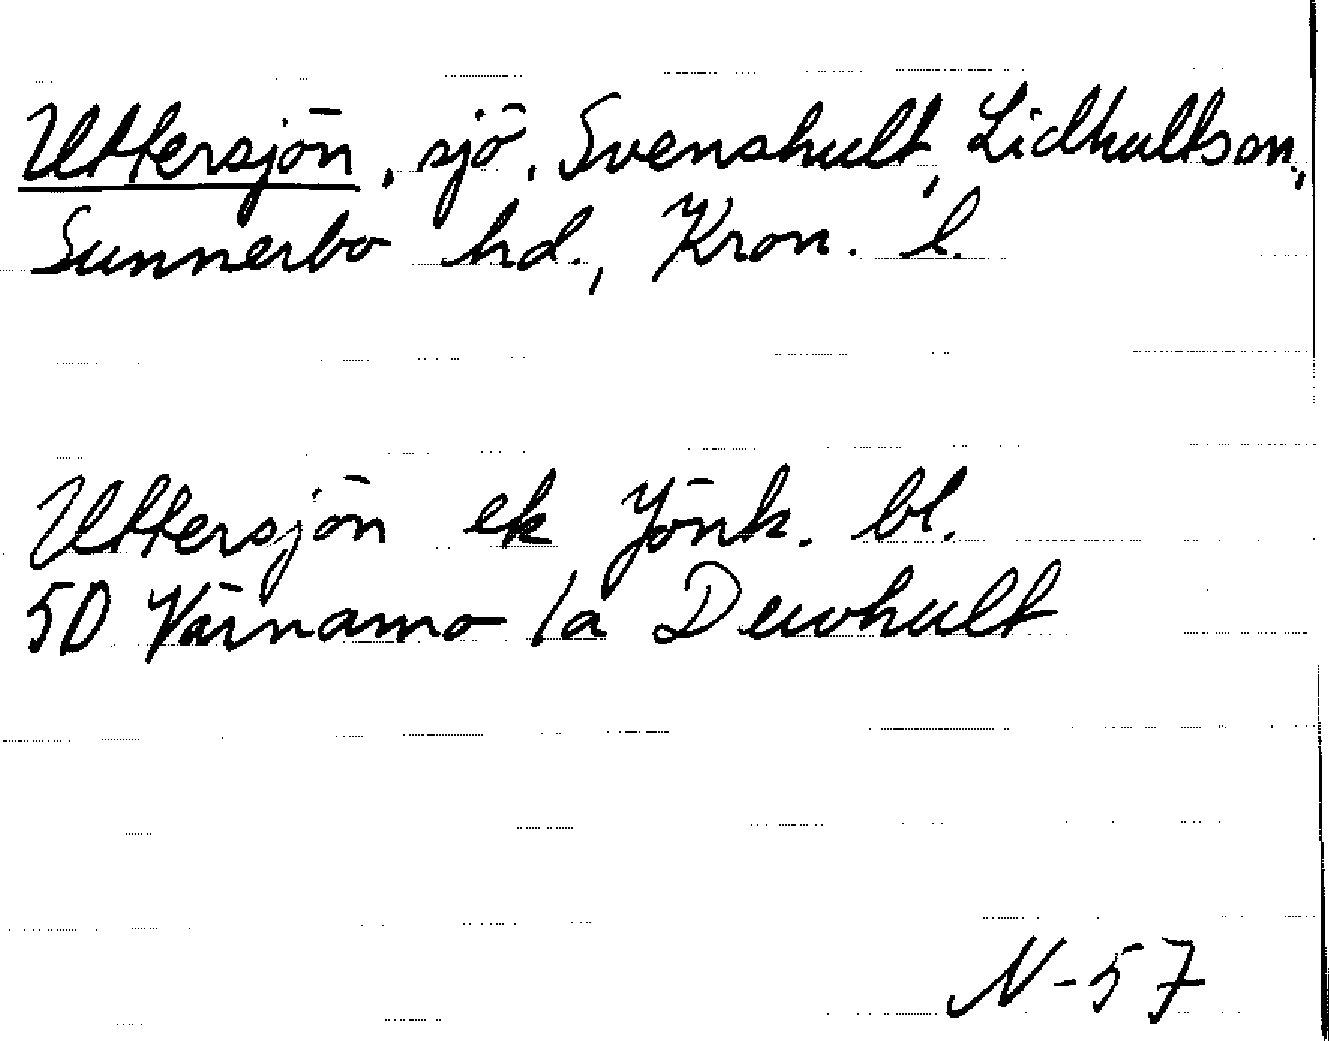 Uttersjön, sjö, Svenshult, Lidhultson,
Sunnerbo hd., Kron. l.
Uttersjön ek Jönk. bl.
5D Värnamo 1a Duvhult
N-57